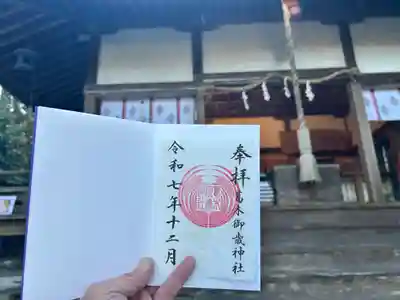 奉拝
葛木御歳神社
令和七年十二月